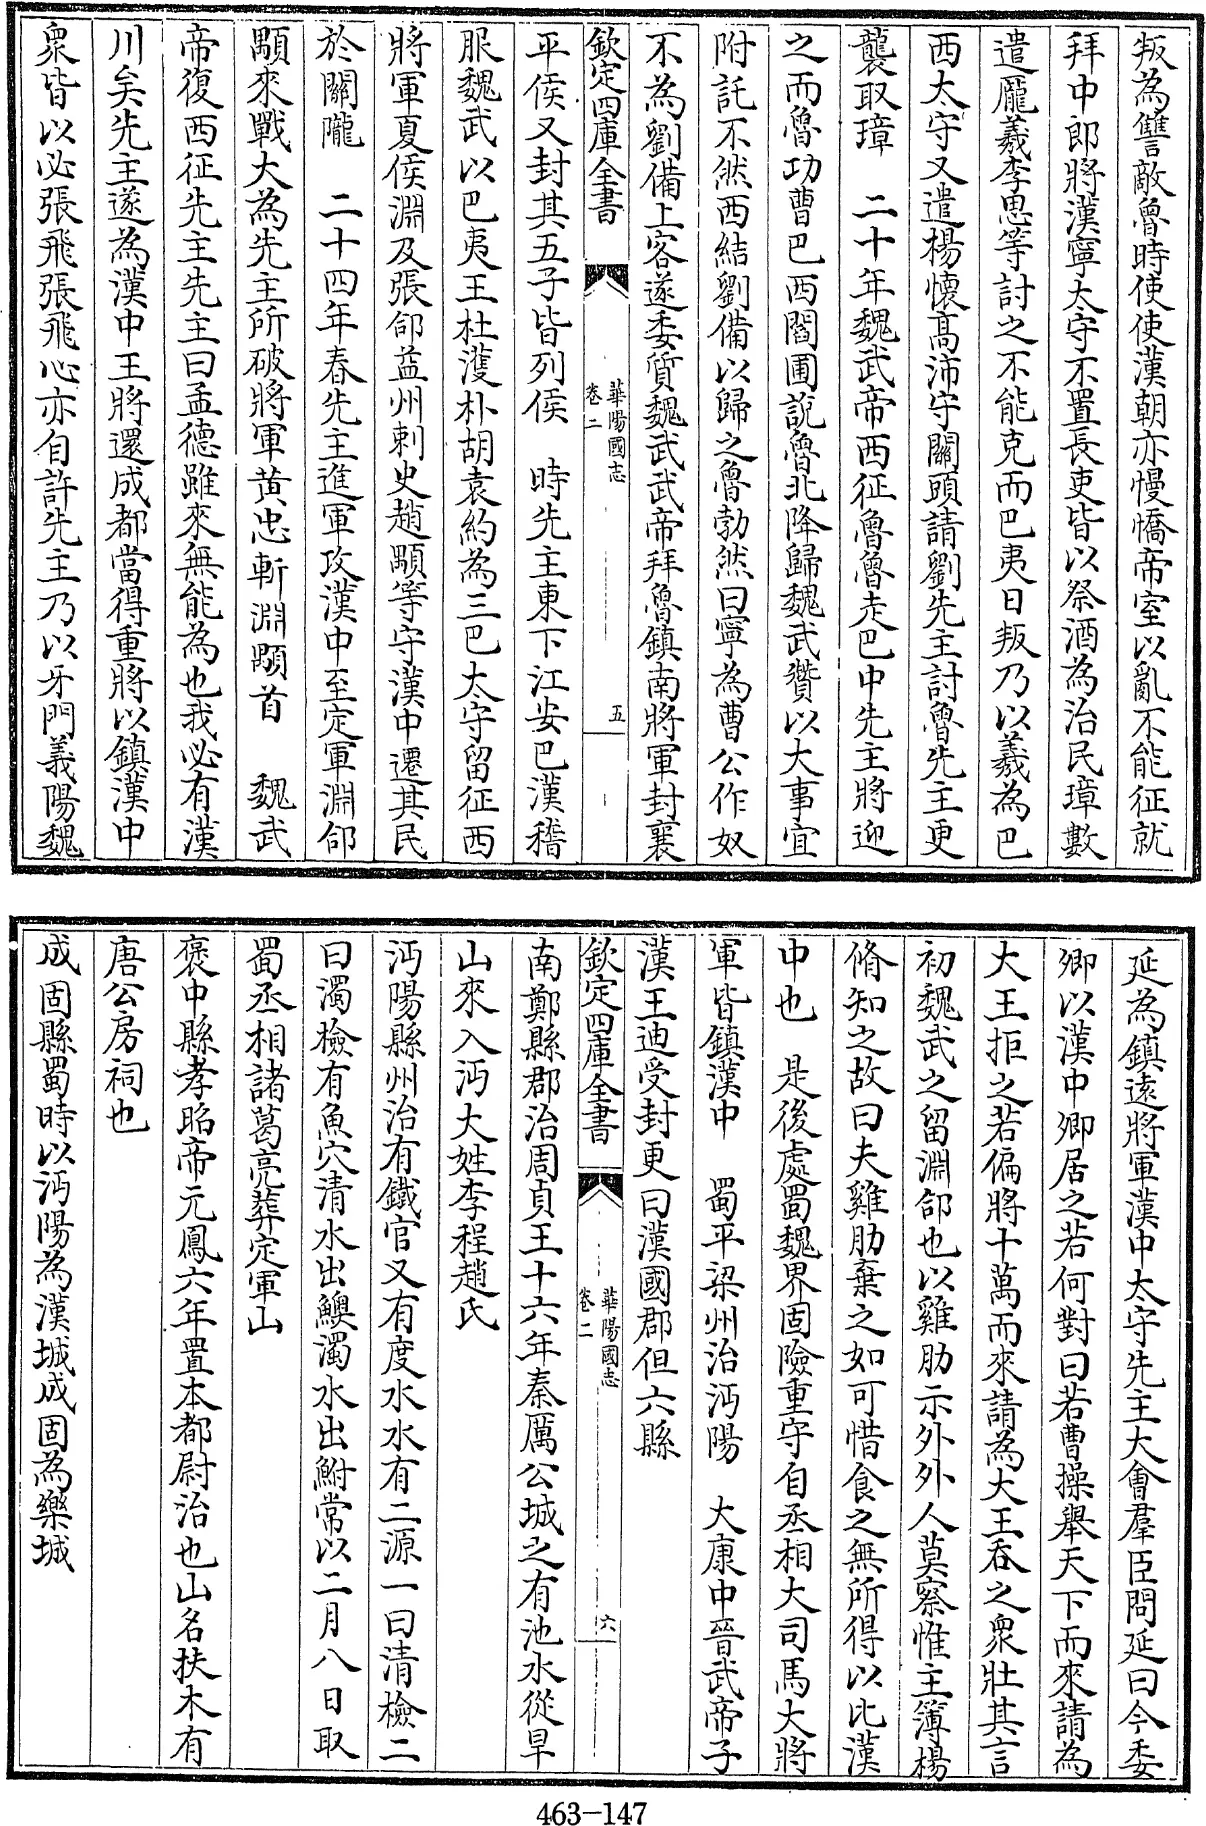 叛為讐敵魯時使使漢朝亦慢憍帝室以亂不能征就
拜中郎將漢寧太守不置長吏皆以祭酒為治民璋數
遣龎羲李思等討之不能克而巴夷日叛乃以羲為巴
西太守又遣楊懷高沛守關頭請劉先主討魯先主更
襲取璋　二十年魏武帝西征魯魯走巴中先主將迎
之而魯功曹巴西閻圃說魯北降歸魏武贊以大事宜
附託不然西結劉備以歸之魯勃然曰寧為曹公作奴
不為劉備上客遂委質魏武武帝拜魯鎮南將軍封襄
欽定四庫全書
華陽國志
卷二
五
平侯又封其五子皆列侯　時先主東下江安巴漢稽
服魏武以巴夷王杜濩朴胡袁約為三巴太守留征西
將軍夏侯淵及張郃益州刺史趙顒等守漢中遷其民
於關隴　二十四年春先主進軍攻漢中至定軍淵郃
顒來戰大為先主所破將軍黄忠斬淵顒首　魏武
帝復西征先主先主曰孟德雖來無能為也我必有漢
川矣先主遂為漢中王將還成都當得重將以鎮漢中
衆皆以必張飛張飛心亦自許先主乃以牙門義陽魏
延為鎮遠將軍漢中太守先主大會羣臣問延曰今委
卿以漢中卿居之若何對曰若曹操舉天下而來請為
大王拒之若偏將十萬而來請為大王吞之衆壯其言
初魏武之留淵郃也以雞肋示外外人莫察惟主簿楊
脩知之故曰夫雞肋棄之如可惜食之無所得以比漢
中也　是後處蜀魏界固險重守自丞相大司馬大將
軍皆鎮漢中　蜀平梁州治沔陽　大康中晉武帝子
漢王迪受封更曰漢國郡但六縣
欽定四庫全書
華陽國志
卷二
六
南鄭縣郡治周貞王十六年秦厲公城之有池水從旱
山來入沔大姓李程趙氏
沔陽縣州治有鐵官又有度水水有二源一曰清檢二
曰濁檢有魚穴清水出鱮濁水出鮒常以二月八日取
蜀丞相諸葛亮葬定軍山
褒中縣孝昭帝元鳳六年置本都尉治也山名扶木有
唐公房祠也
成固縣蜀時以沔陽為漢城成固為樂城
463-147